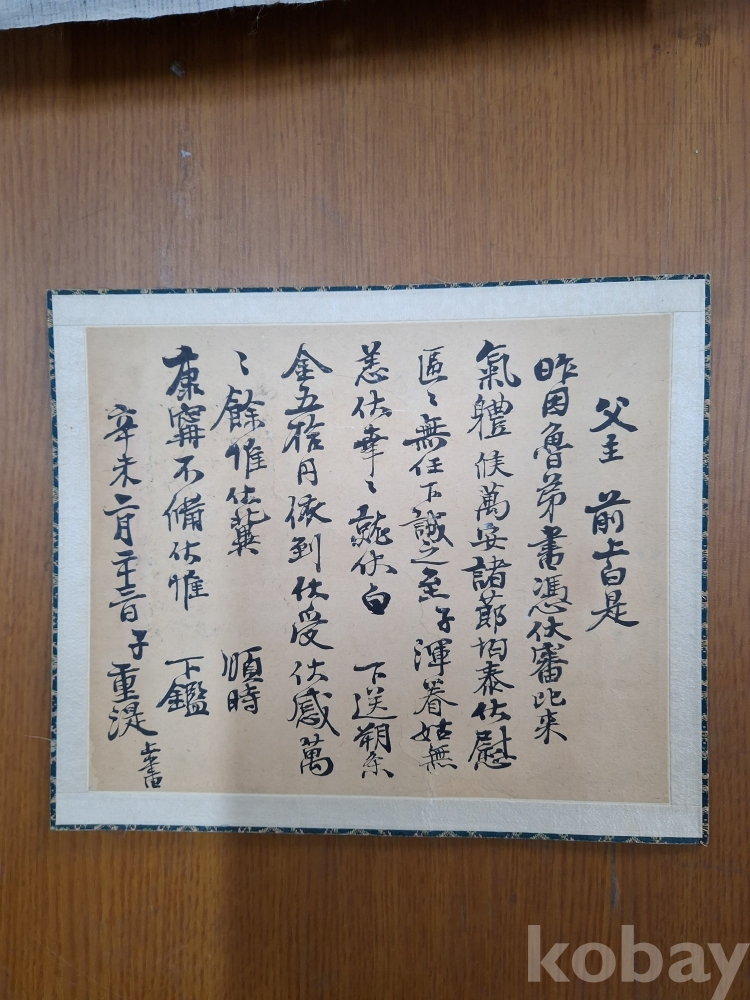 父主 前上白是
昨因魯弟書憑伏審比来
氣體候萬安諸節均泰伏慰
區〻無任下誠之至 子渾眷姑無
恙伏幸〻就伏白 下送朔条
金五拾円依到伏受伏感萬
〻餘惟伏冀 順時
康寧不備伏惟 下鑑
辛未二月二十三日 子 重湜 上書
kobay